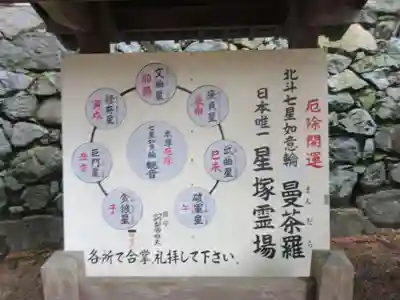 厄除開運
北斗七星如意輪 曼荼羅
まんだら
日本唯一 星塚霊場
文曲星
卯酉
廉貞星
辰申
武曲星
巳未
破軍星
午
貪狼星
子
巨門星
丑亥
禄存星
寅戌
本尊
七星如意輪観音
各所で合掌、礼拝して下さい。